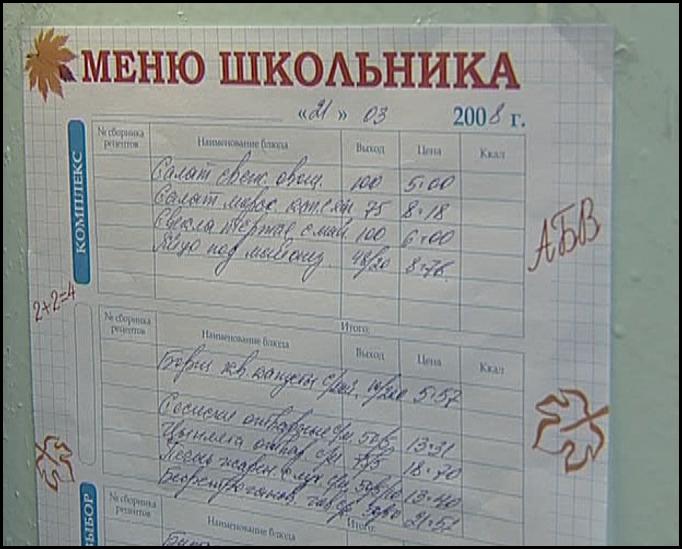 МЕНЮ ШКОЛЬНИКА
«21» 03 2008 г.
КОМПЛЕКС
№ сборника рецептов Наименование блюда Выход Цена Ккал
Салат свеж. овощ. 100 5=00
Салат морск. 75 8=18
Свекла тертая с май. 100 6=00
Яйцо под майонез. 48/20 8=76
АБВ
2+2=4
Итого:
№ сборника рецептов Наименование блюда Выход Цена Ккал
Борщ капусты 5=57
Сосиски отварные 13=31
Цыплята отвар. 18=70
Печень жарен. 13=40
Бефстроганов 21=52
Итого:
ВЫБОР
№ сборника рецептов Наименование блюда Выход Цена Ккал